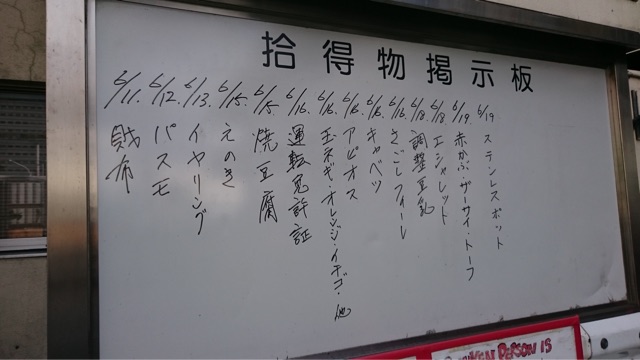 拾得物掲示板
6/11. 財布
6/12. パスモ
6/13. イヤリング
6/15. えのき
6/15. 焼豆腐
6/16. 運転免許証
6/16. 玉ネギ・オレンジ・イチゴ・他
6/16. アビオス
6/16. キャベツ
6/16. さごしフィーレ
6/18. 調整豆乳
6/18. エシャレット
6/19. 赤かぶ・ザーサイ・トーフ
6/19 ステンレスポット
PERSON IS